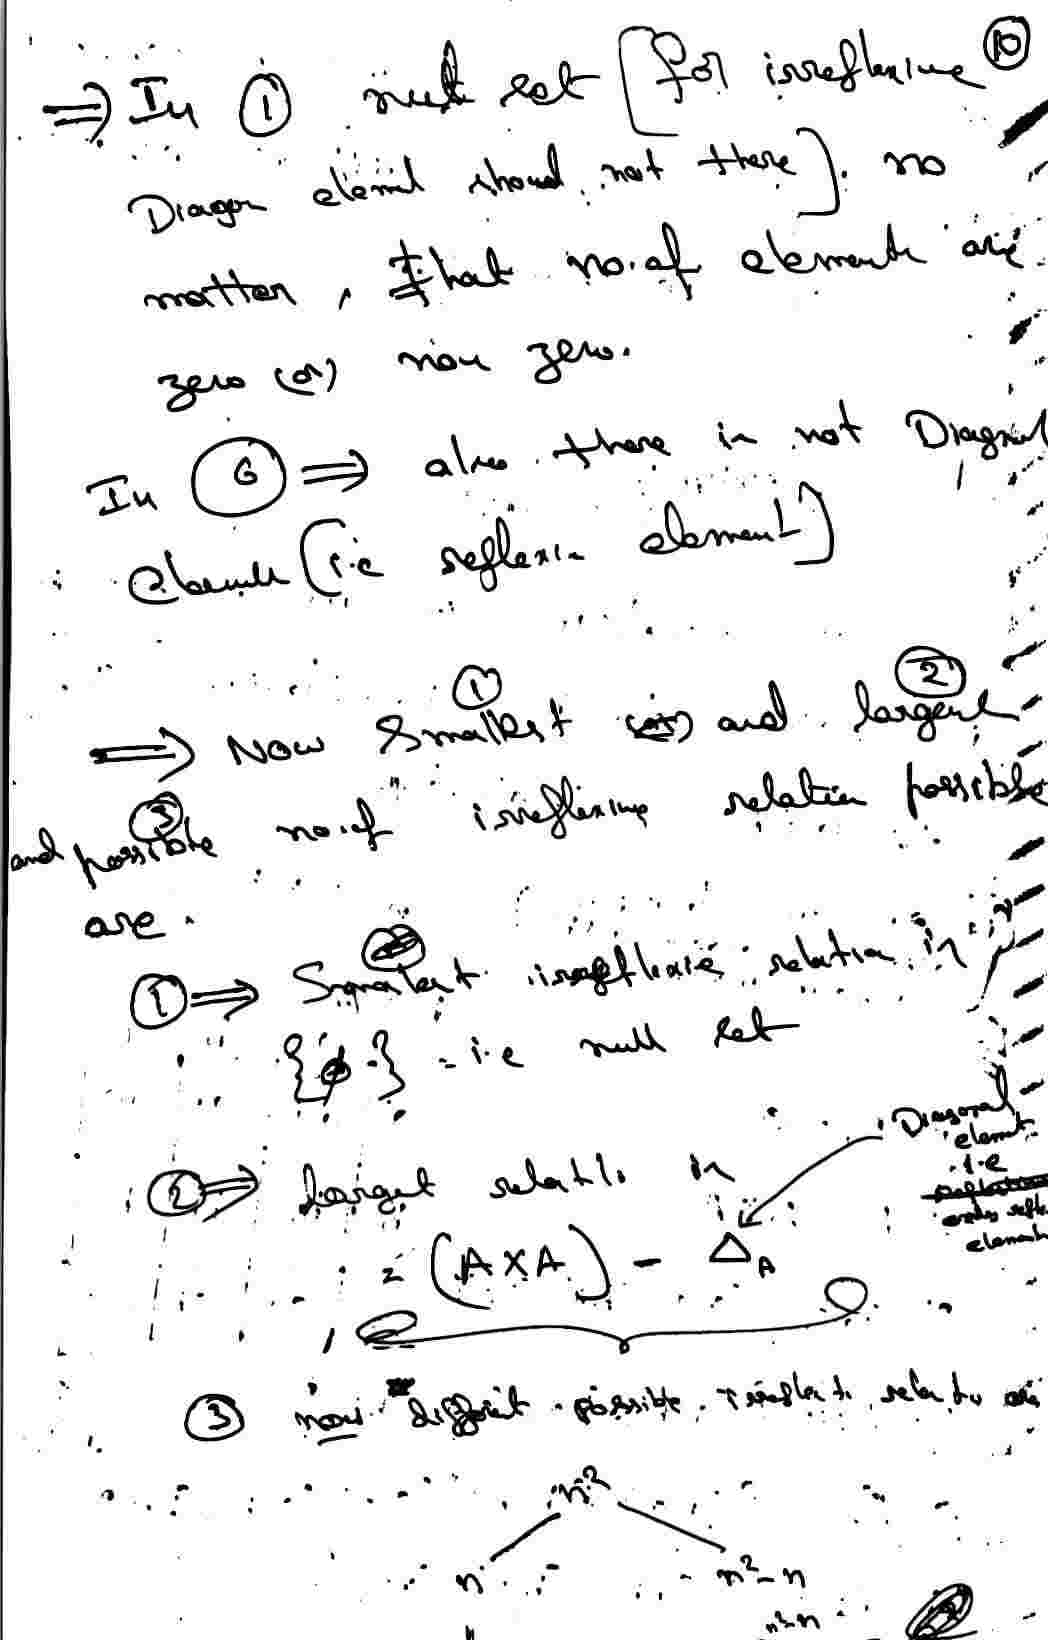 10
⇒ In ① null set [for irreflexive
Diagon element should not there]. no
matter, that no.of elements are
zero (or) non zero.
In ⑥ ⇒ also there is not Diagonal
element (i.e reflexive element)
① ②
⇒ Now Smallest and largest
③
and possible no.of irreflexive relation possible
are.
① ⇒ Smallest irreflexive relation is
{ϕ} - i.e null set
Diagonal
element
i.e
② ⇒ largest relation is
elements
= (A×A) - Δ_A
③ now different possible irreflexive relation are
n²
n n²-n
n²-n